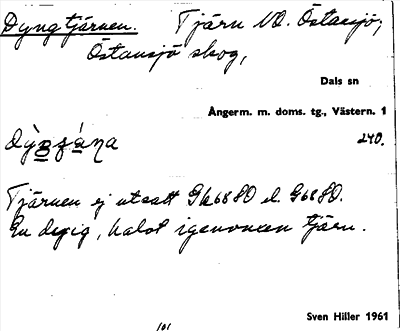 Dyngtjärnen. Tjärn NO. Östansjö,
Östansjö skog,
Dals sn
Ångerm. m. doms. tg., Västern. 1
240.
Tjärnen ej utsatt Gk68SO el. G68SO.
En dyig, halvt igenvuxen tjärn.
Sven Hiller 1961